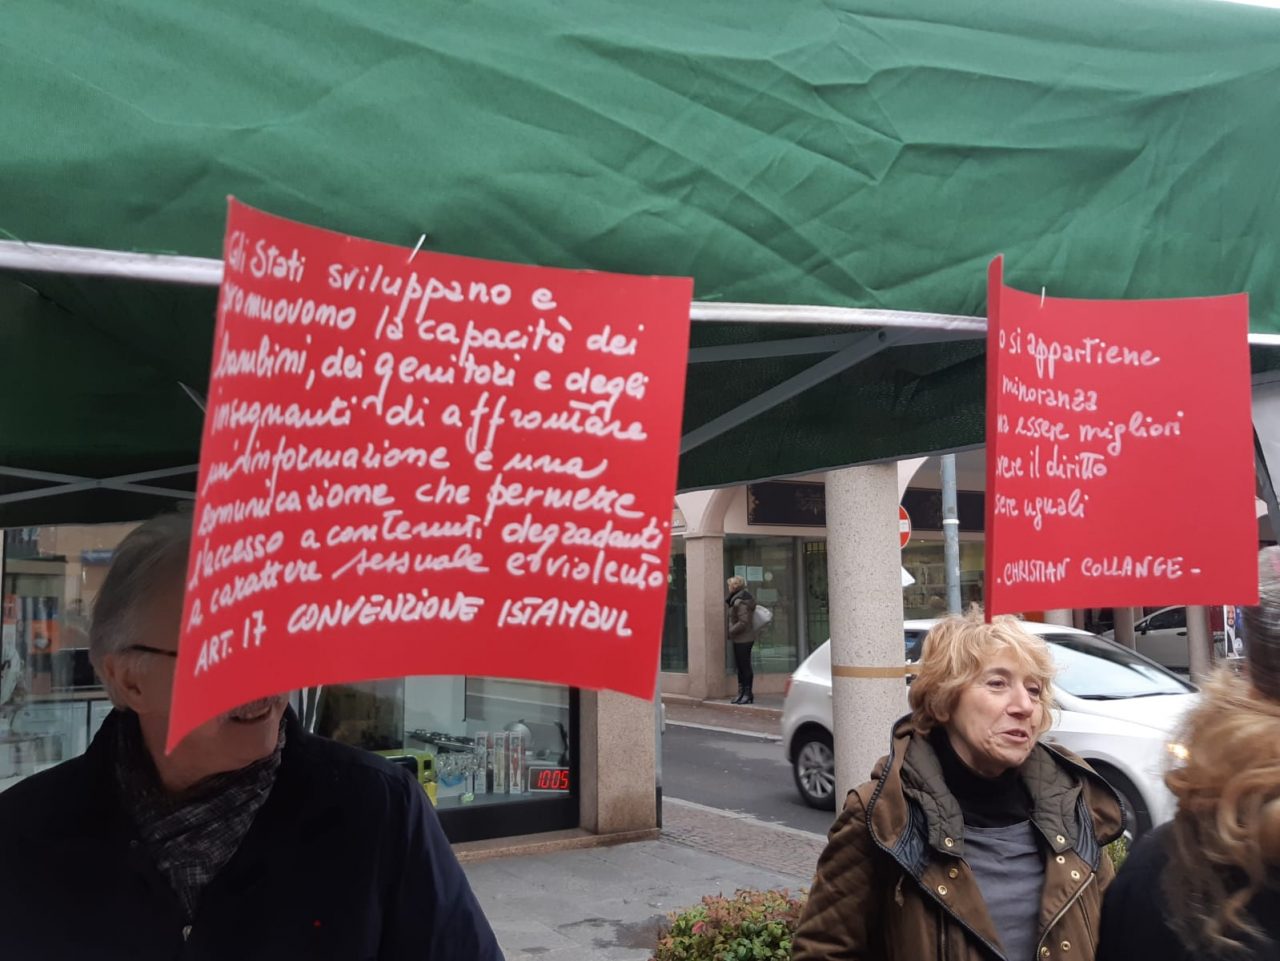 Gli Stati sviluppano e
promuovono la capacità dei
bambini, dei genitori e degli
insegnanti di affrontare
un'informazione e una
comunicazione che permette
l'accesso a contenuti degradanti
a carattere sessuale e violento
ART. 17 CONVENZIONE ISTAMBUL
o si appartiene
minoranza
essere migliori
vere il diritto
sere uguali
- CHRISTIAN COLLANGE -
10:05